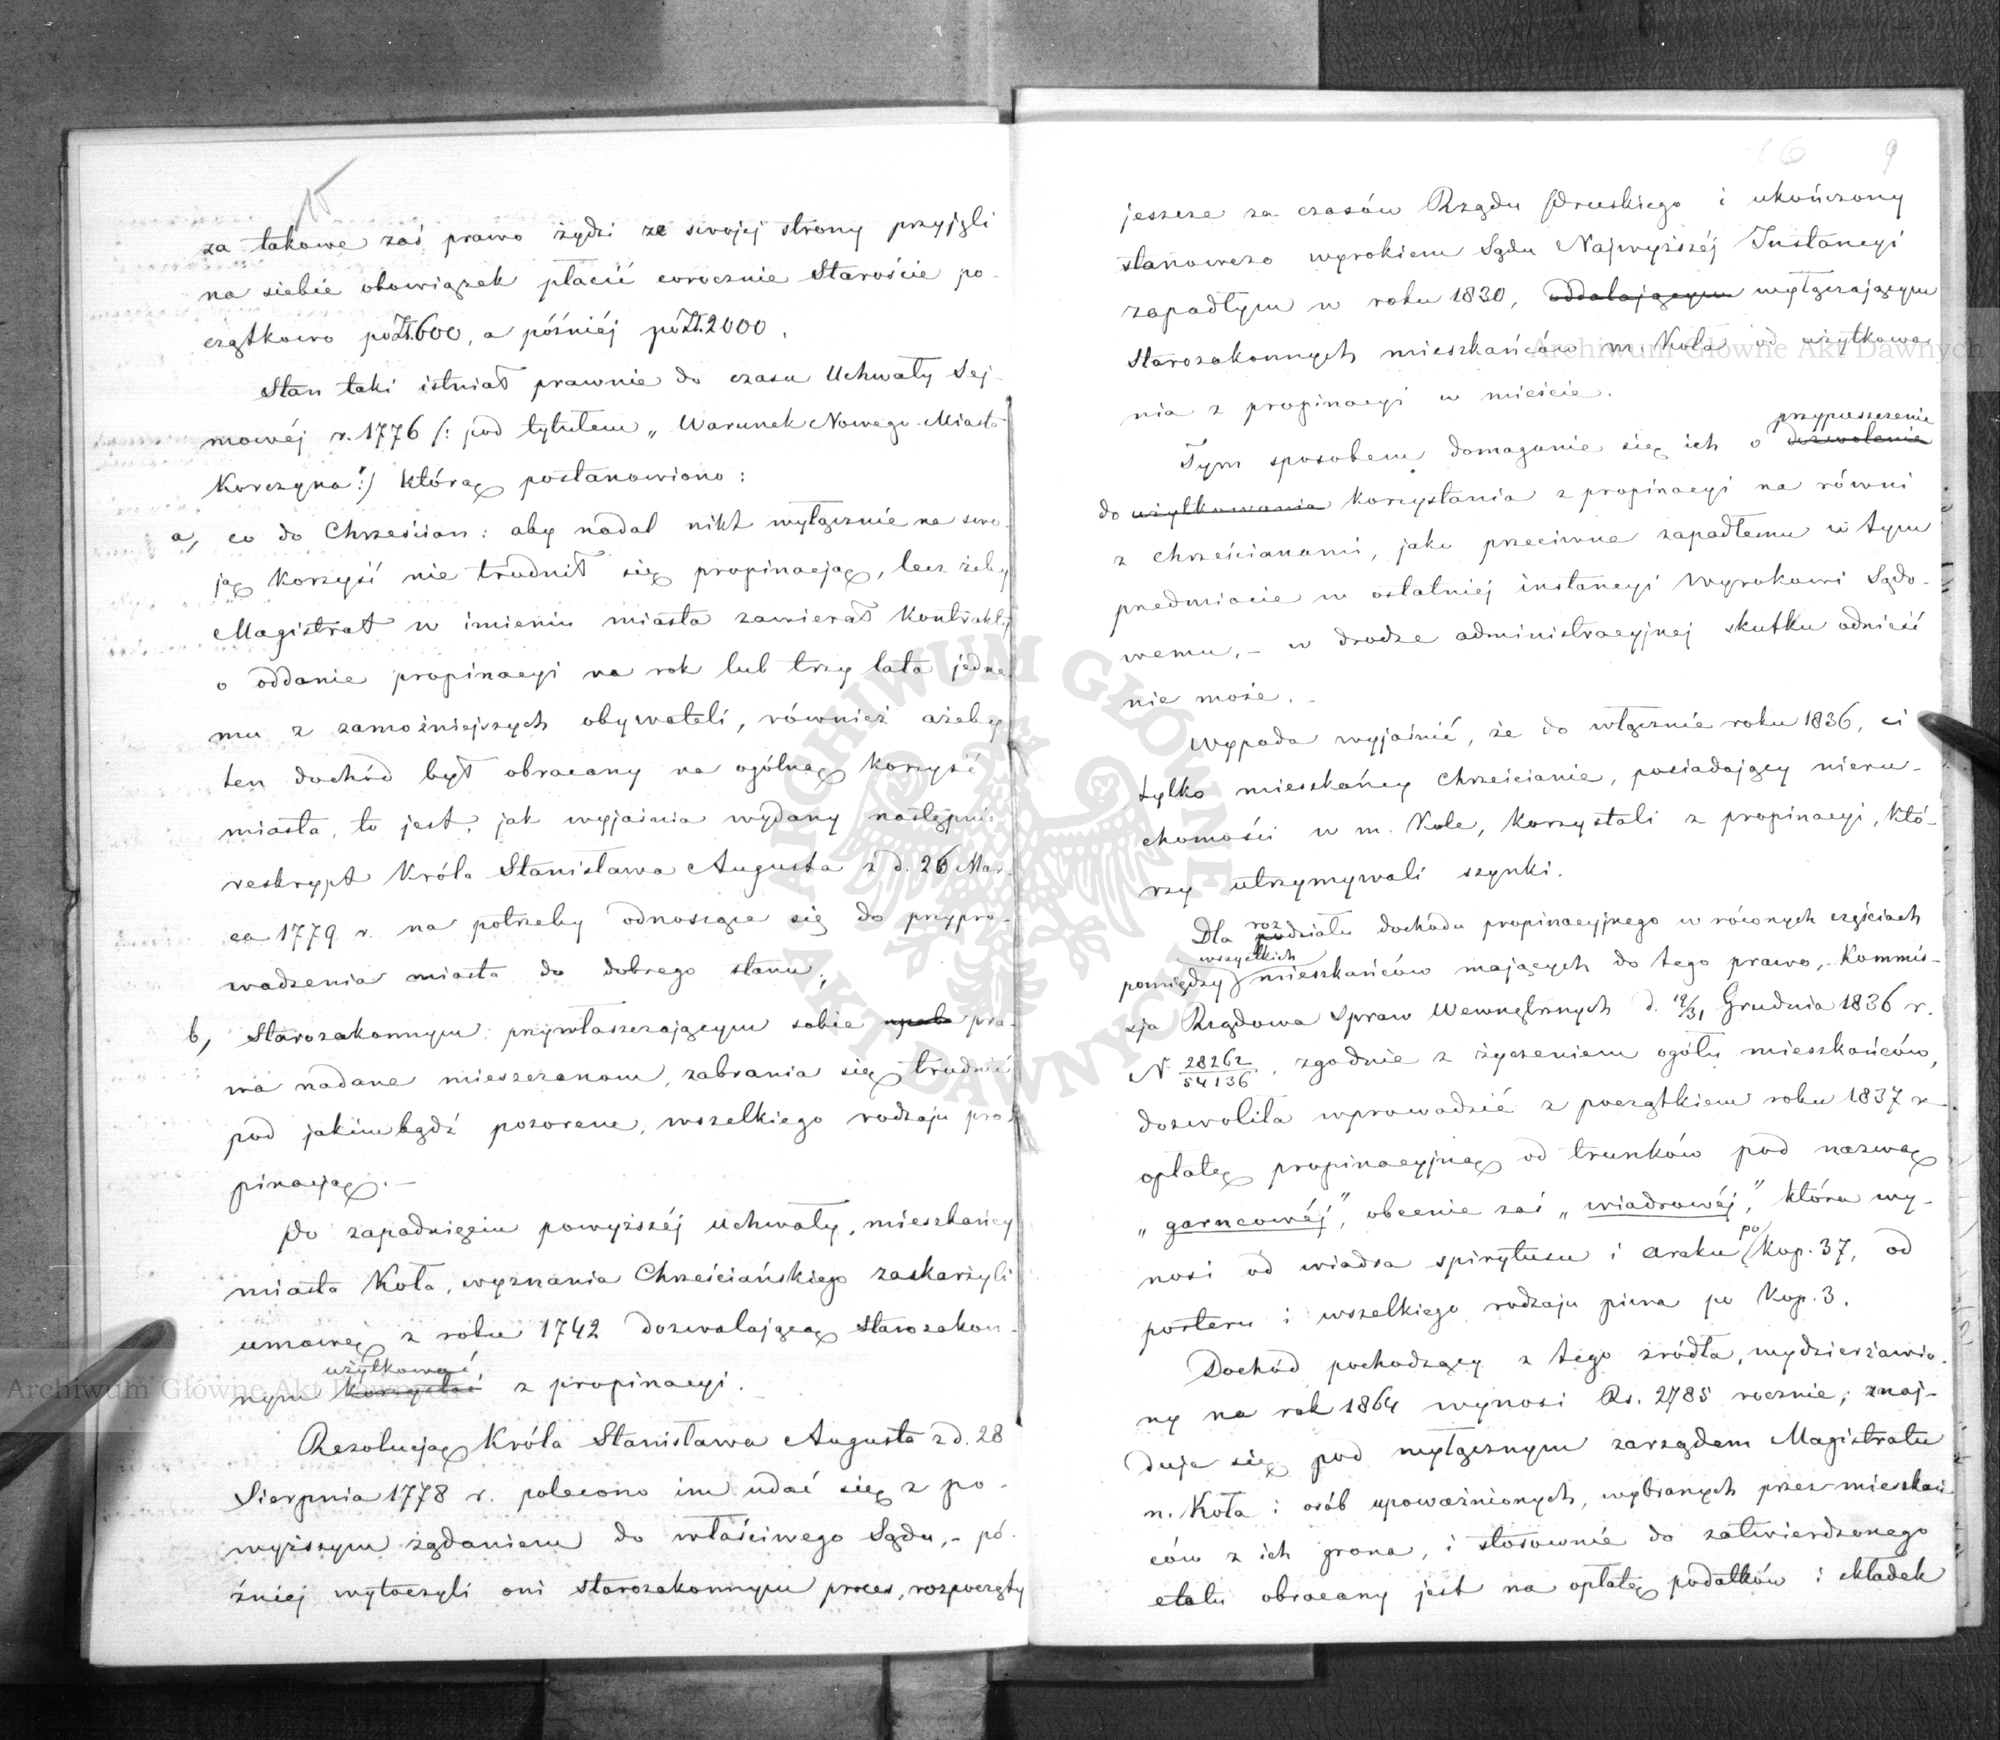 15
za takowe zaś prawo żydzi ze swojéj strony przyjęli
na siebie obowiązek płacić corocznie Staroście po-
czątkowo po Zł. 600, a późniéj po Zł. 2000.
Stan taki istniał prawnie do czasu Uchwały Sej-
mowéj r. 1776 /: pod tytułem „Warunek Nowego-Miasta
Korczyna":/ którą postanowiono:
a, co do Chrześcian: aby nadal nikt wyłącznie na swo-
ją Korzyść nie trudnił się propinacją, lecz żeby
Magistrat w imieniu miasta zawierał Kontrakty
o oddanie propinacyi na rok lub trzy lata jedne-
mu z zamożniejszych obywateli, również ażeby
ten dochód był obracany na ogólną Korzyść
miasta, to jest, jak wyjaśnia wydany następnie
reskrypt Króla Stanisława Augusta z d. 26 Mar-
ca 1779 r. na potrzeby odnoszące się do przypro-
wadzenia miasta do dobrego stanu;
b, Starozakonnym, przywłaszczającym sobie pra-
wa nadane mieszczanom, zabrania się trudnić
pod jakimbądź pozorem, wszelkiego rodzaju pro-
pinacją.—
Po zapadnięciu powyższéj Uchwały, mieszkańcy
miasta Koła, wyznania Chrześciańskiego zaskarżyli
umowę z roku 1742 dozwalającą Starozakon-
użytkować
nym korzystać z propinacyi.
Rezolucją Króla Stanisława Augusta z d. 28
Sierpnia 1778 r. polecono im udać się z po-
wyższym żądaniem do właściwego Sądu,- pó-
źniej wytoczyli oni starozakonnym proces, rozpoczęty
16 9
jeszcze za czasów Rządu Pruskiego i ukończony
stanowczo wyrokiem Sądu Najwyższéj Instancyi
zapadłym w roku 1830, oddalającym wyłączającym
Starozakonnych mieszkańców m. Koła od użytkowa-
nia z propinacyi w mieście.
przypuszczenie
Tym sposobem domaganie się ich o dozwolenie
do użytkowania korzystania z propinacyi na równi
z chrześcianami, jako przeciwne zapadłemu w tym
przedmiocie w ostatniéj instancyi Wyrokowi Sądo-
wemu,- w drodze administracyjnej skutku odnieść
nie może.-
Wypada wyjaśnić, że do włącznie roku 1836, ci
tylko mieszkańcy Chrześcianie, posiadający nieru-
chomości w m. Kole, Korzystali z propinacyi, któ-
rzy utrzymywali szynki.
roz
Dla podziału dochodu propinacyjnego w równych częściach
wszystkich
pomiędzy mieszkańców mających do tego prawo,- Kommis-
sja Rządowa Spraw Wewnętrznych d. 19/31 Grudnia 1836 r.
N. 28262/54136, zgodnie z życzeniem ogółu mieszkańców,
dozwoliła wprowadzić z początkiem roku 1837 r.
opłatę propinacyjną od trunków pod nazwą
„garncowéj", obecnie zaś „wiadrowéj", która wy-
po
nosi od wiadra spirytusu i araku Kop. 37, od
porteru i wszelkiego rodzaju piwa po Kop. 3.
Dochód pochodzący z tego źródła, wydzierżawio-
ny na rok 1864 wynosi Rs. 2785 rocznie; znaj-
duje się pod wyłącznym zarządem Magistratu
m. Koła i osób upoważnionych, wybranych przez mieszkań-
ców z ich grona, i stosownie do zatwierdzonego
etatu obracany jest na opłatę podatków i składek
Archiwum Główne Akt Dawnych
Archiwum Główne Akt Dawnych
ARCHIWUM GŁÓWNE AKT DAWNYCH